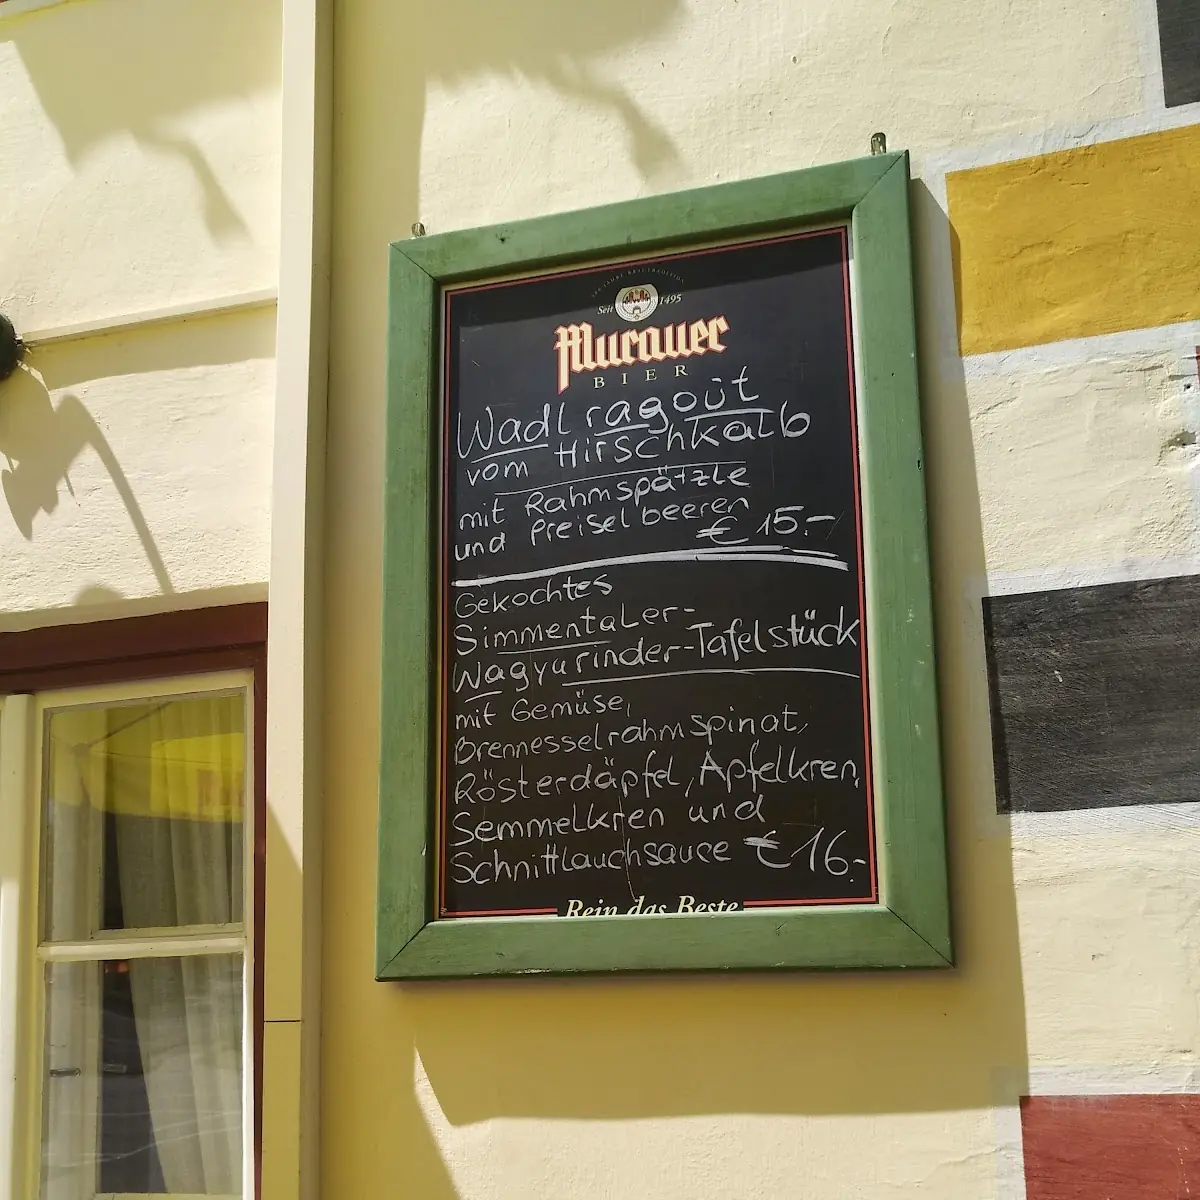 500 JAHRE BRAUTRADITION
Seit 1495
Murauer
BIER
Wadlragout
vom Hirschkalb
mit Rahmspätzle
und Preiselbeeren
€ 15.-
Gekochtes
Simmentaler-
Wagyurinder-Tafelstück
mit Gemüse,
Brennesselrahmspinat,
Rösterdäpfel, Apfelkren,
Semmelkren und
Schnittlauchsauce € 16.-
Rein das Beste